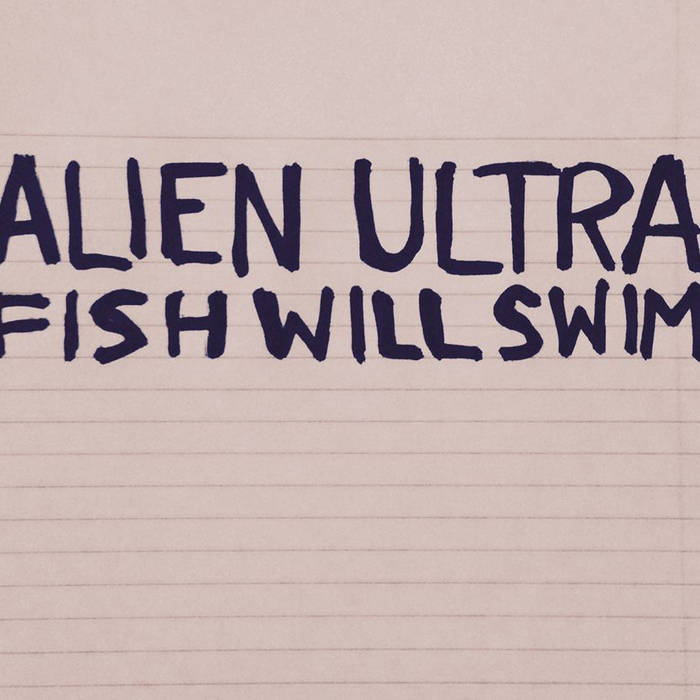 ALIEN ULTRA
FISH WILL SWIM